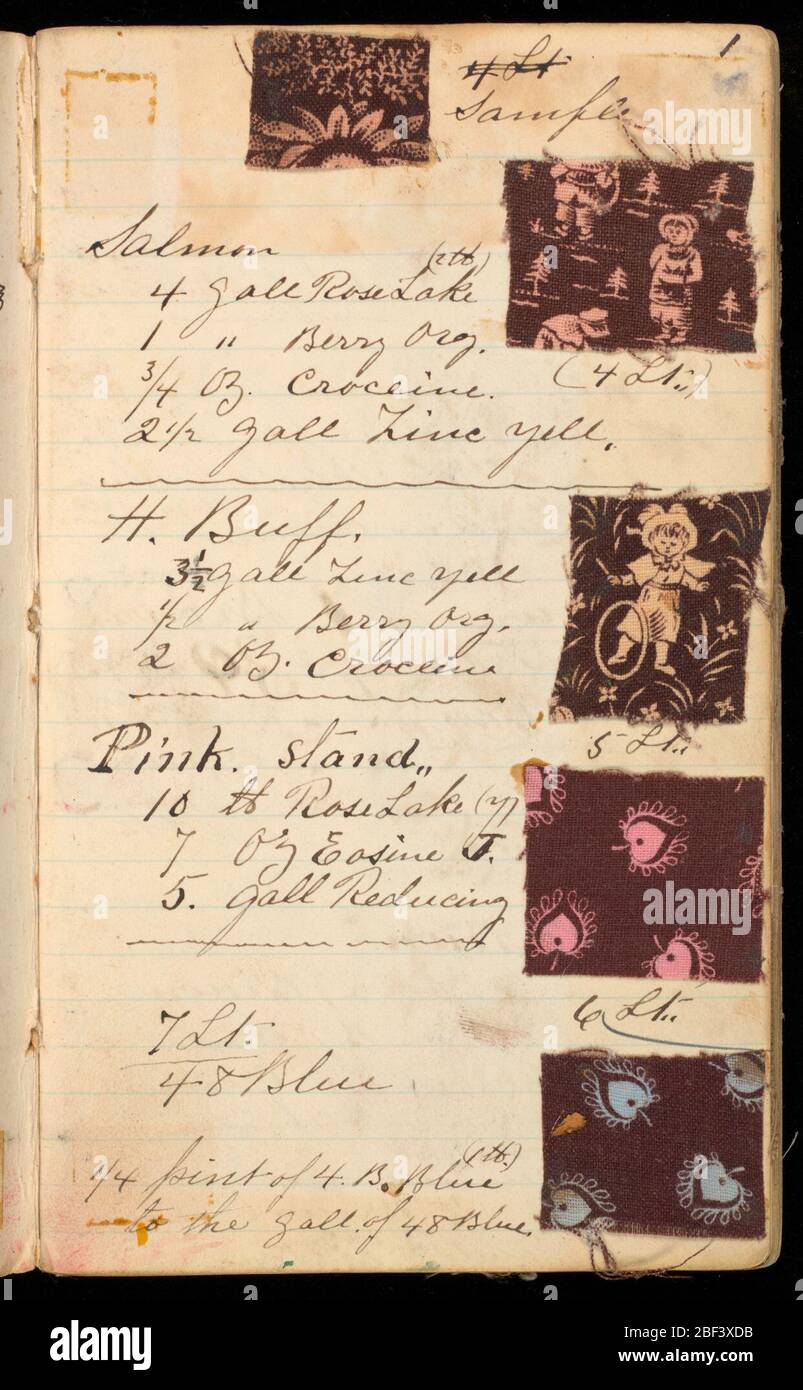 1
4 Lt
Sample
Salmon
4 gall Rose Lake (2 lb)
1 " Berry Org.
3/4 Oz. Croceine.
2 1/2 gall Zinc yell.
(4 Lt.)
H. Buff.
3 1/2 gall Zinc yell
1/2 " Berry Org.
2 Oz. Croceine
5 Lt.
Pink. Stand,,
10 lb Rose Lake (y)
7 Oz Eosine J.
5. gall Reducing
6 Lt.
7 Lt.
48 Blue
1/4 pint of 4. B. Blue (1 lb.)
to the gall. of 48 Blue.
alamy
Image ID: 2BF3XDB
www.alamy.com